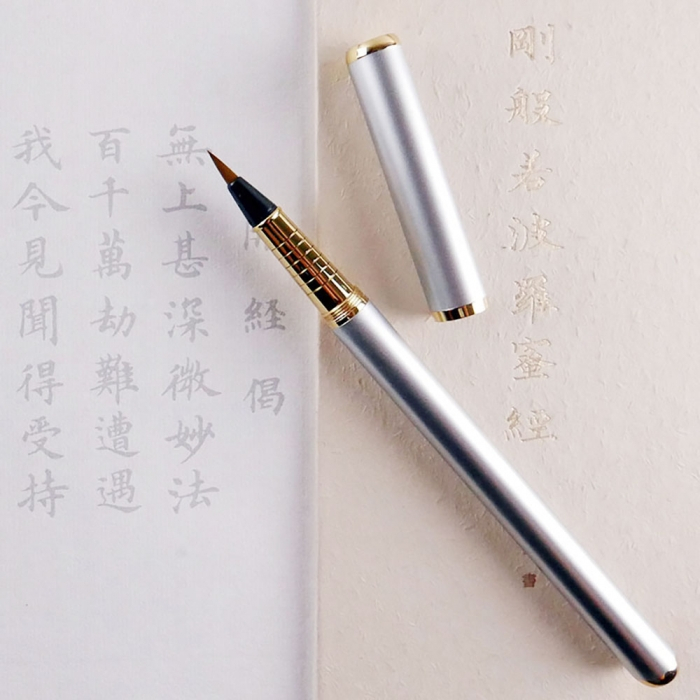 剛般若波羅蜜經
経偈
無上甚深微妙法
百千萬劫難遭遇
我今見聞得受持